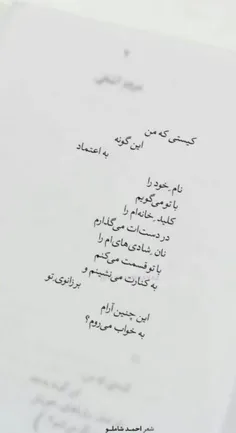 ۲
کیستی که من
این گونه
به اعتماد
نام ِ خود را
با تو می‌گویم
کلید ِ خانه‌ام را
در دست‌ات می‌گذارم
نان ِ شادی‌های‌ام را
با تو قسمت می‌کنم
به کنارت می‌نشینم و
بر زانوی ِ تو
این چنین آرام
به خواب می‌روم؟
شعر احمد شاملو